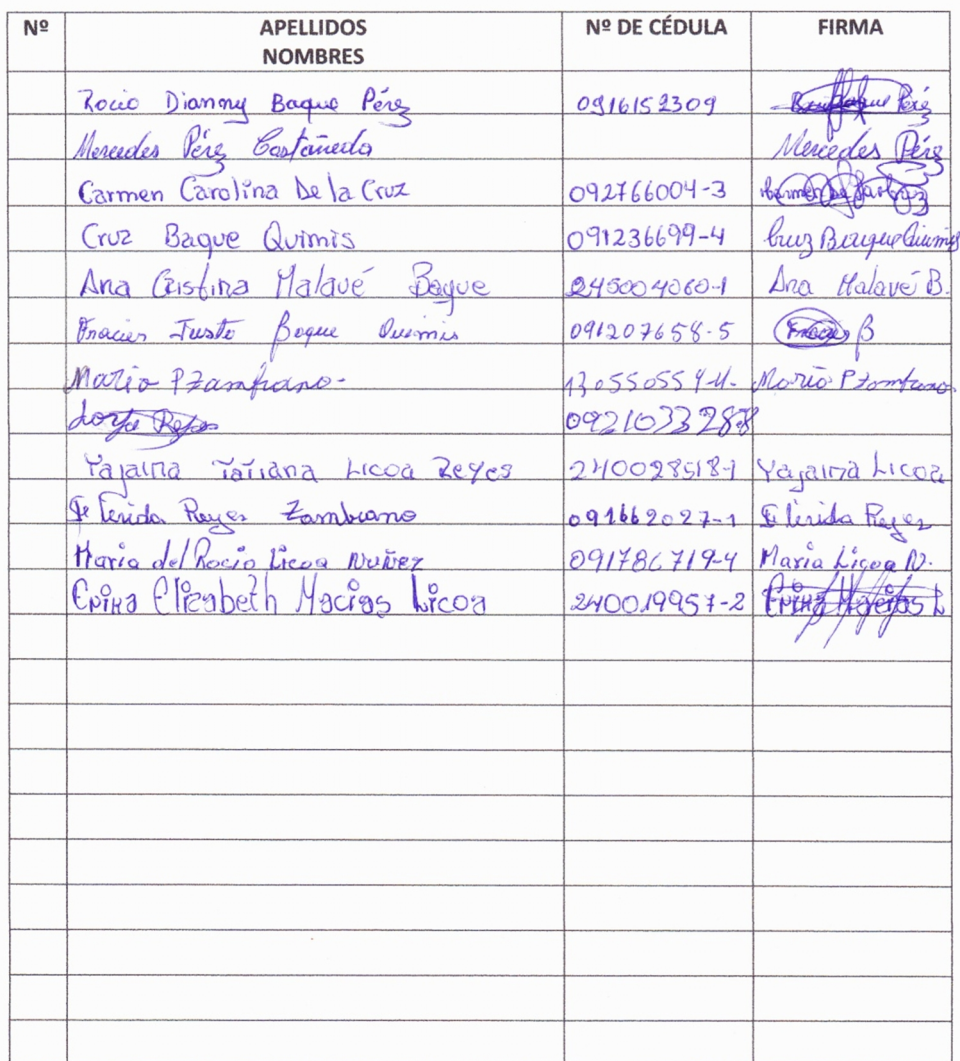 Nº APELLIDOS NOMBRES Nº DE CÉDULA FIRMA
Rocio Dianny Baque Pérez 0916152309 Pérez
Mercedes Pérez Castañeda Mercedes Pérez
Carmen Carolina De la Cruz 092766004-3 Carmen De la Cruz
Cruz Baque Quimis 091236699-4 Cruz Baque Quimis
Ana Cristina Malavé Baque 245004060-1 Ana Malavé B.
Justo Baque Quimis 091207658-5 B
Mario P Zambrano- Mario P Zambrano
Reyes
Yajaira Tatiana Licoa Reyes 240028518-1 Yajaira Licoa
Reyes Zambrano 091662027-1 Reyes
Maria del Rocio Licoa Nuñez 091786719-4 Maria Licoa N.
Erika Elizabeth Macias Licoa 240019957-2 Erika Macias L